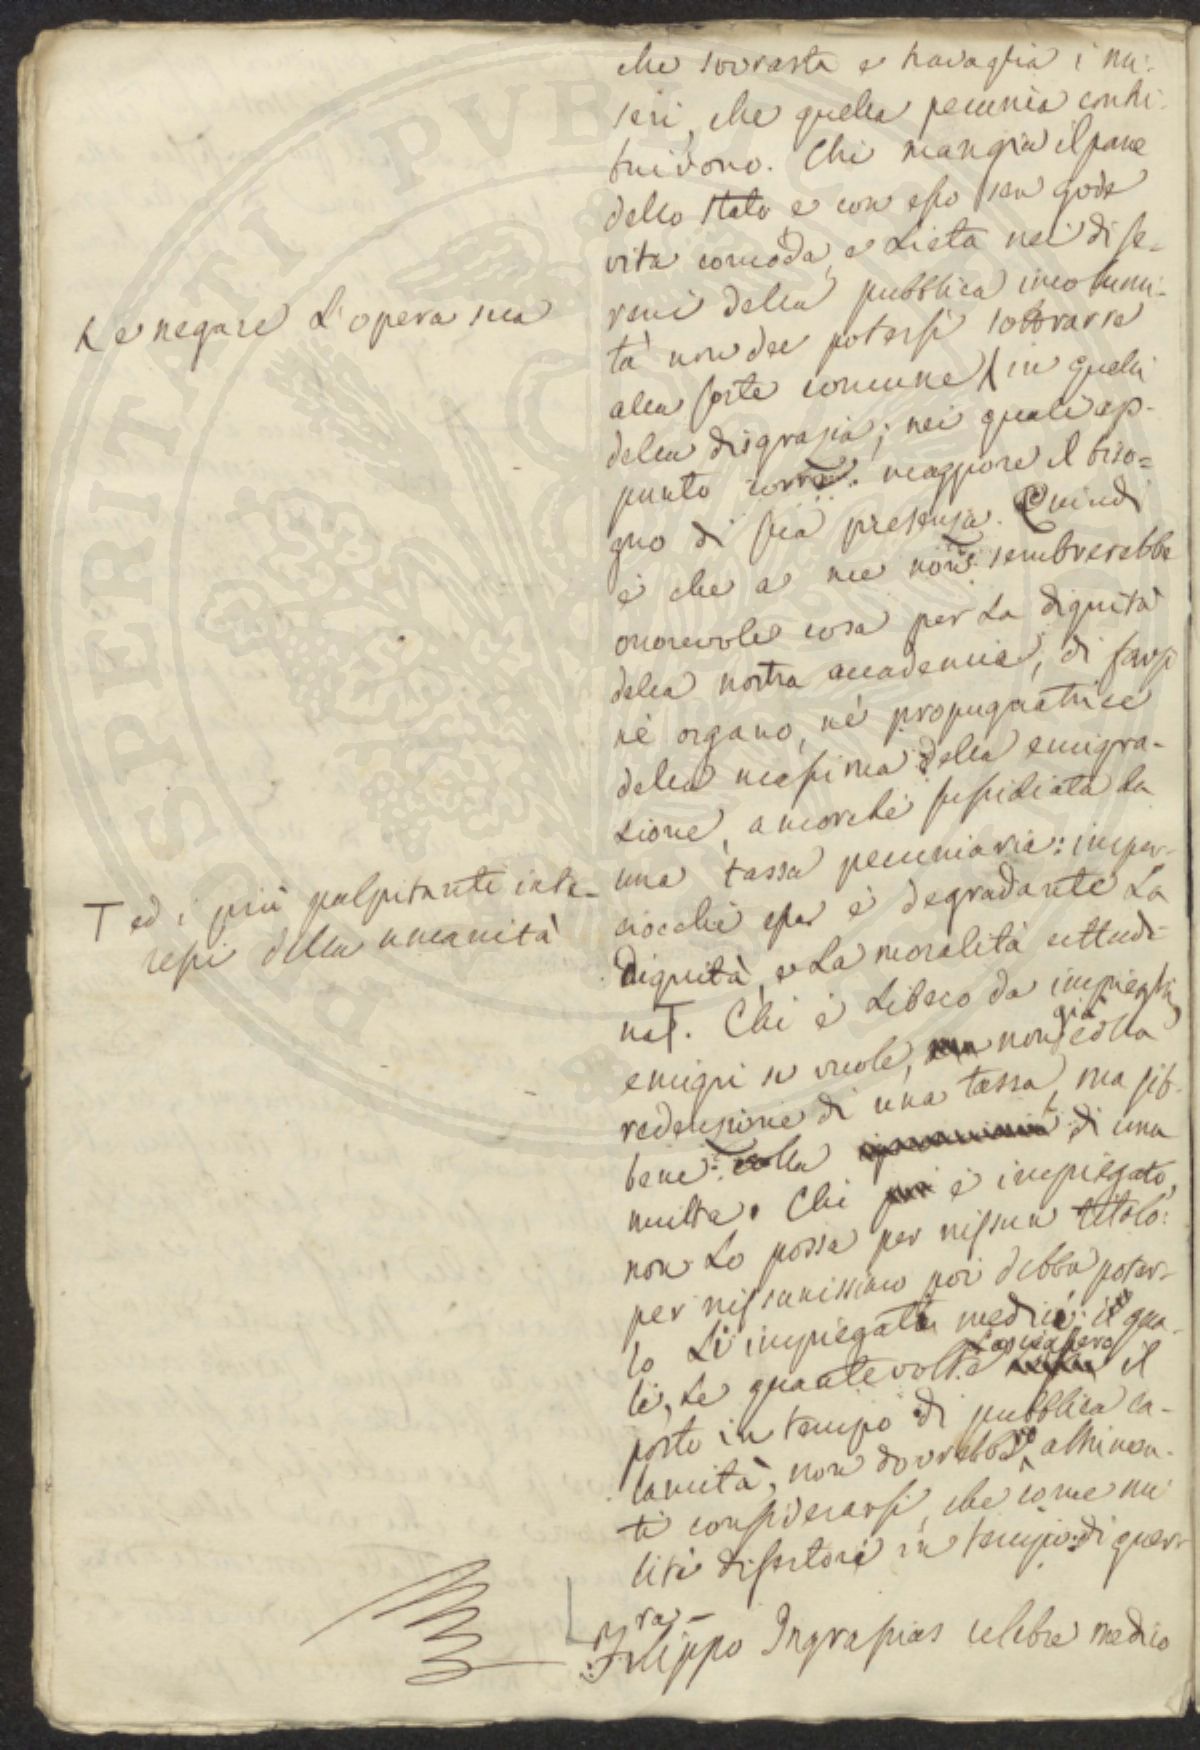 che sovrasta e travaglia i mi-
seri, che quella pecunia contri-
buirono. Chi mangia il pane
dello Stato e con esso sen gode
vita comoda, e lieta nei dì se-
reni della pubblica incolumi-
tà non dee potersi sottrarre
alla sorte comune X in quelli
della disgrazia; nei quali ap-
punto maggiore il biso=
gno di sua presenza. Quindi
è che a me non sembrerebbe
onorevole cosa per la dignità
della nostra accademia, di farsi
nè organo, nè propugnatrice
della massima della emigra-
zione, ancorchè sussidiata da
una tassa pecuniaria: imper-
ciocchè essa è degradante la
dignità, e la moralità
T. Chi è libero da impieghi,
emigri se vuole, non già colla
redenzione di una tassa, ma sib-
bene colla di una
multa. Chi è impiegato,
non lo possa per nissun titolo:
per nissunissimo poi debba poter-
lo li impiegati medici: i qua-
li, se quante volte lasciassero il
posto in tempo di pubblica ca-
lamità, non dovrebbero altrimen-
ti considerarsi, che come mi-
liti disertori in tempo di guer-
ra-
Filippo Ingrassias celebre medico
X e negare l'opera sua
T ed i più palpitanti inte-
ressi della umanità
PROSPERITATI PUBLICAE